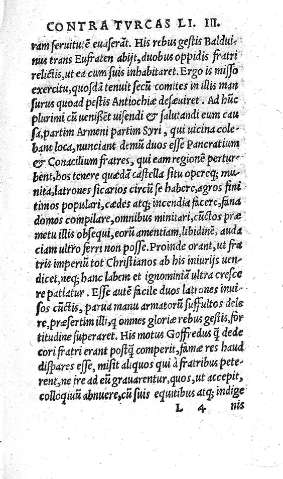 CONTRA TVRCAS LI. III.
ram seruitutē euaserāt. His rebus gestis Baldui-
nus trans Eufraten abijt, duobus oppidis fratri
relictis, ut ea cum suis inhabitaret. Ergo is misso
exercitu, quosdā tenuit secū comites in illis man
surus quoad pestis Antiochiæ desæuiret. Ad hūc
plurimi cū uenissēt uisendi & salutandi eum cau
sa, partim Armeni partim Syri, qui uicina cole-
bant loca, nunciant demū duos esse Pancratium
& Conacilium fratres, qui eam regionē pertur-
bent, hos tenere quædā castella situ opereq; mu-
nita, latrones sicarios circū se habere, agros fini
timos populari, cædes atq; incendia facere, fana
domos compilare, omnibus minitari, cūctos præ
metu illis obsequi, eorū amentiam, libidinē, auda
ciam ultro ferri non posse. Proinde orant, ut fra
tris imperiū tot Christianos ab his iniurijs uen-
dicet, neq; hanc labem et ignominiā ultra cresce
re patiatur. Esse autē facile duos latrones inui-
sos cūctis, parua manu armatorū suffultos dele
re, præsertim illi, q omnes gloriæ rebus gestis, for
titudine superaret. His motus Goffredus q̄ dede
cori fratri erant postq̄ comperit, famæ res haud
dispares esse, misit aliquos qui à fratribus pete-
rent, ne ire ad eū grauarentur, quos, ut accepit,
colloquiū abnuere, cū suis equitibus atq; indige
L 4 nis